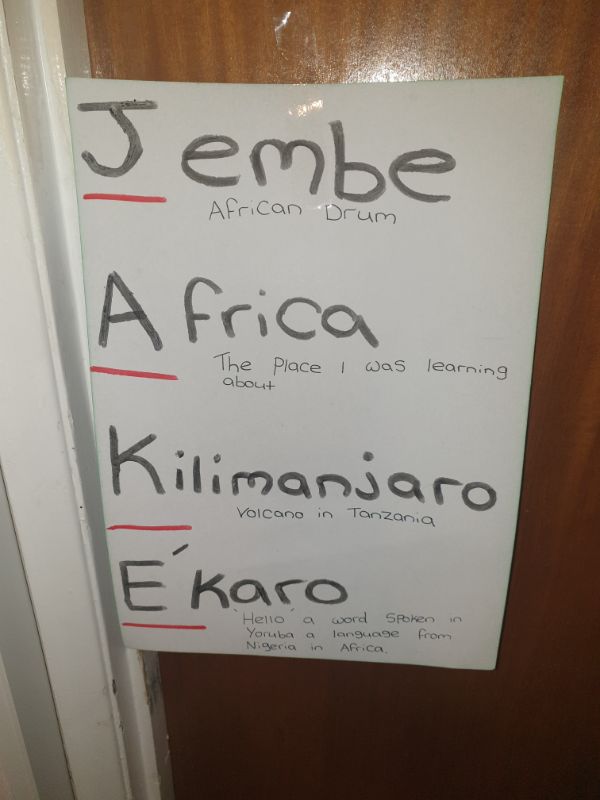 Jembe
African Drum
Africa
The Place I was learning
about
Kilimanjaro
Volcano in Tanzania
E'karo
'Hello' a word spoken in
Yoruba a language from
Nigeria in Africa.